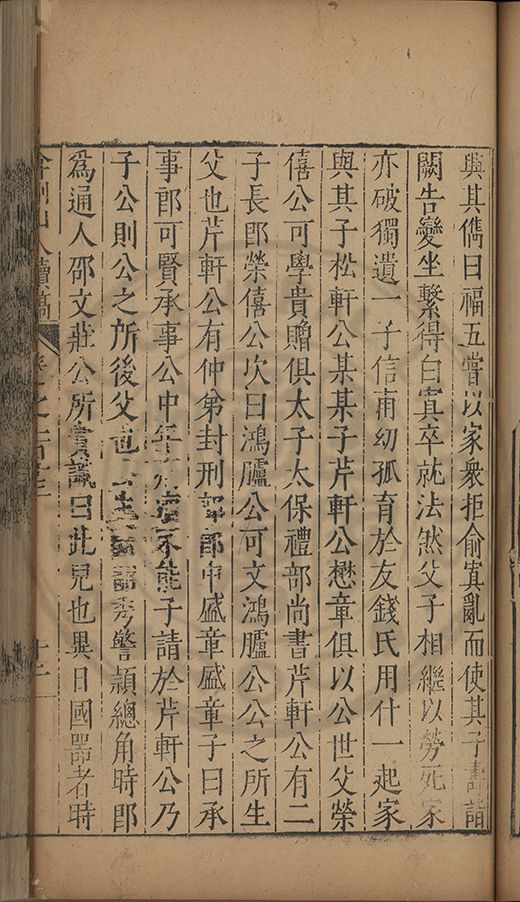 與其儁曰福五嘗以家衆拒俞寘亂而使其子壽詣
闕告變坐繫得白寘卒就法然父子相繼以勞死家
亦破獨遺一子信甫幼孤育於友錢氏用什一起家
與其子松軒公某某子芹軒公懋章俱以公世父榮
僖公可學貴贈俱太子太保禮部尚書芹軒公有二
子長即榮僖公次曰鴻臚公可文鴻臚公公之所生
父也芹軒公有仲弟封刑部郎中盛章盛章子曰承
事郎可賢承事公中年不能子請於芹軒公乃
子公則公之所後父也公生秀警穎總角時即
為通人邵文莊公所賞識曰此兒也異日國器者時
山人續稿